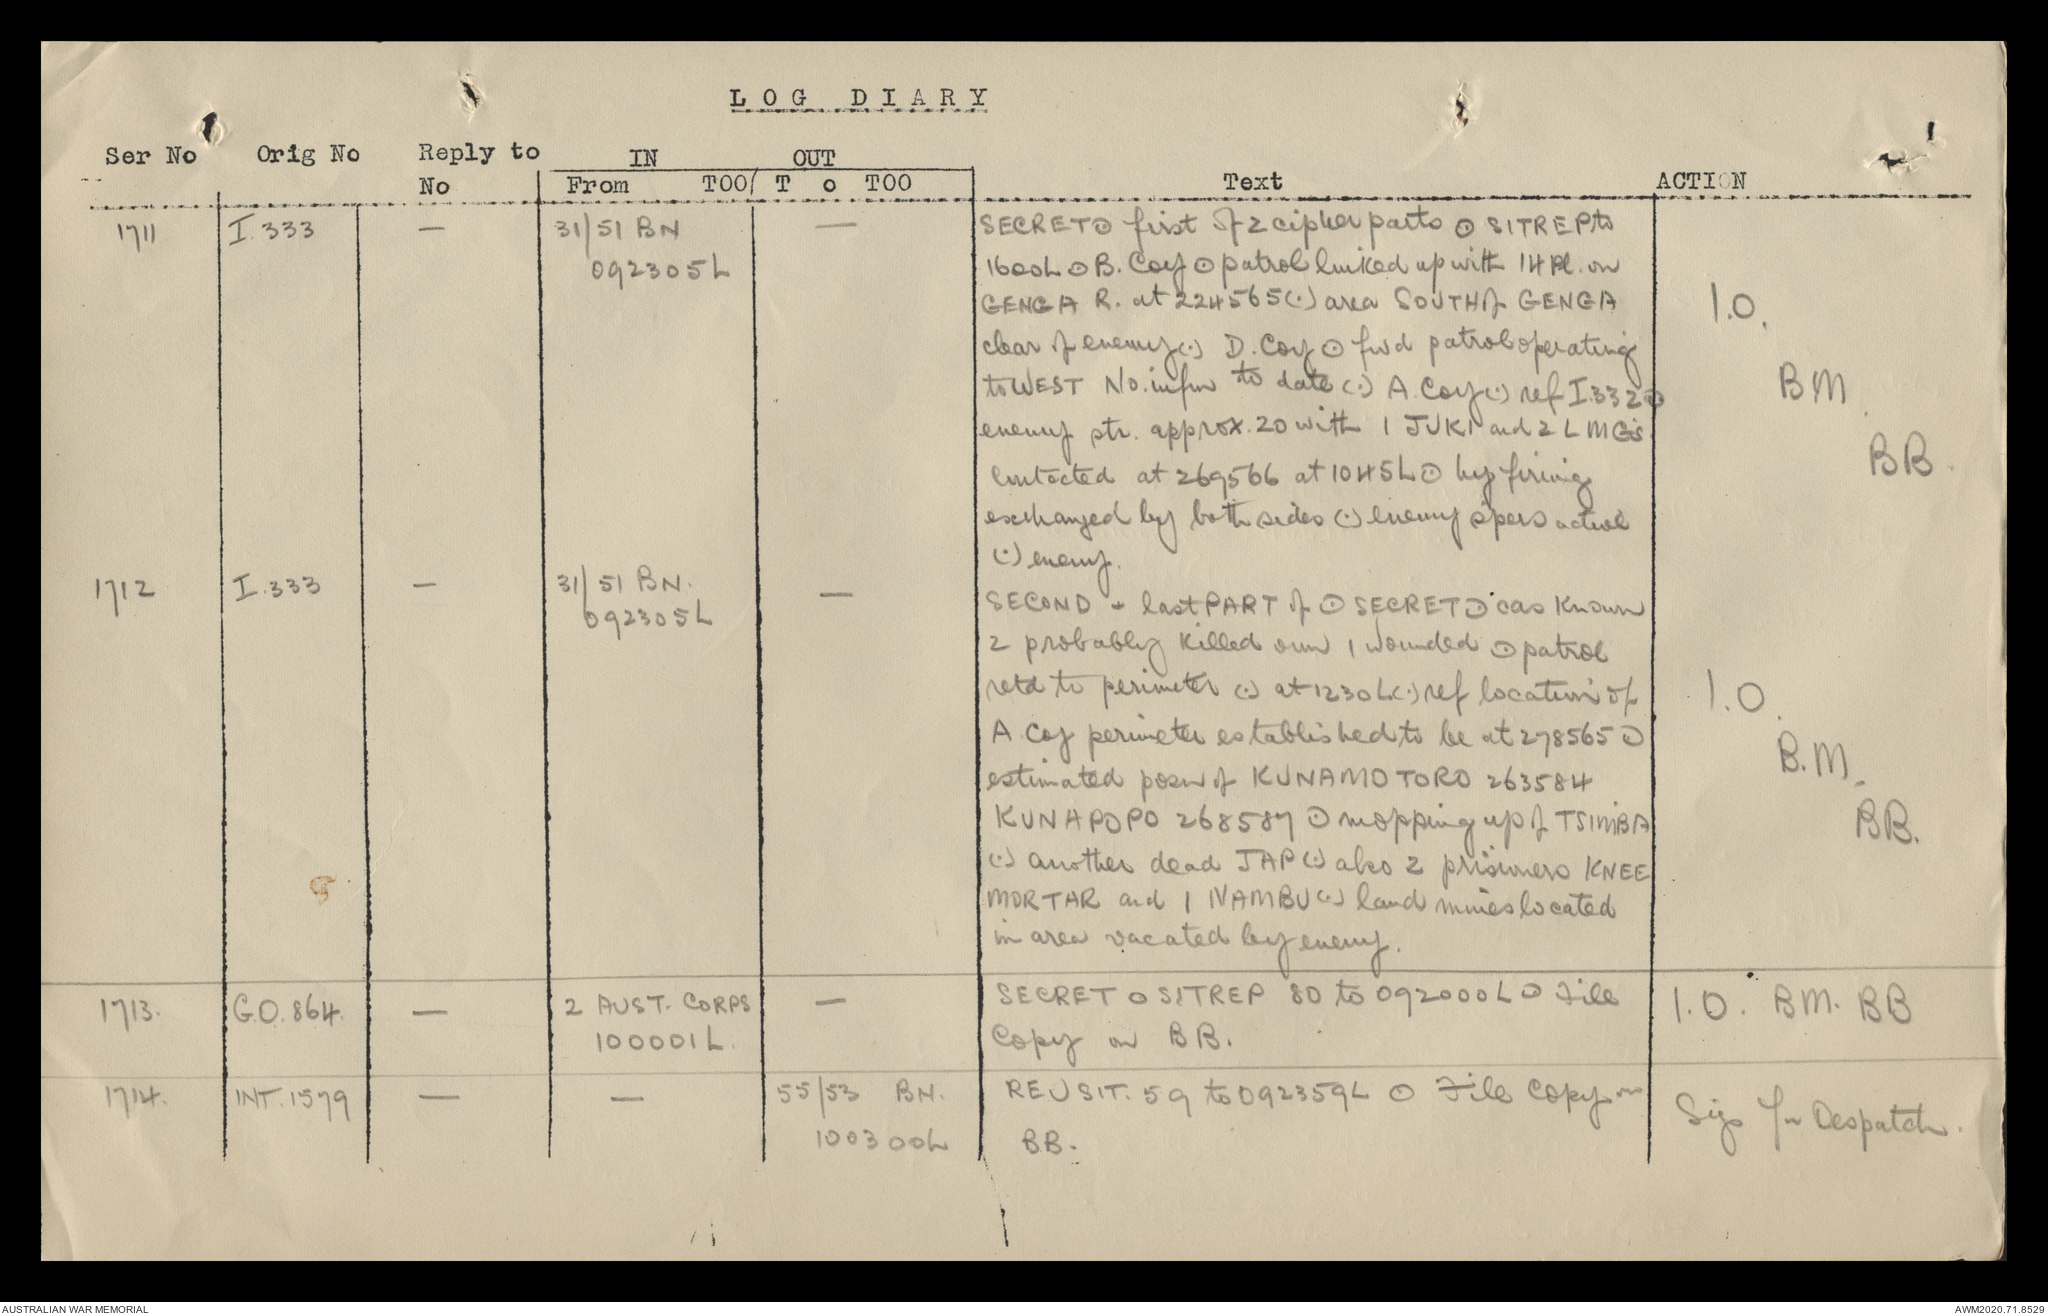 LOG DIARY
Ser No Orig No Reply to No IN From TOO OUT To TOO Text ACTION
1711 I.333 — 31/51 BN 092305L —
SECRET ⊙ first of 2 cipher parts ⊙ SITREP to
1600L ⊙ B. Coy ⊙ patrol linked up with 14 Pl. on
GENGA R. at 224565 (.) area SOUTH of GENGA
clear of enemy (.) D. Coy ⊙ fwd patrol operating
to WEST No. infm to date (.) A. Coy (.) ref I.332 ⊙
enemy str. approx. 20 with 1 JUKI and 2 LMGs
contacted at 269566 at 1045L ⊙ hy firing
exchanged by both sides (.) enemy snipers active
(.) enemy.
I.O.
BM.
BB.
1712 I.333 — 31/51 BN. 092305L —
SECOND + last PART of ⊙ SECRET ⊙ cas known
2 probably killed own 1 wounded ⊙ patrol
retd to perimeter (.) at 1230L (.) ref location of
A Coy perimeter established to be at 278565 ⊙
estimated posn of KUNAMOTORO 263584
KUNAPOPO 268587 ⊙ mopping up of TSIMBA
(.) another dead JAP (.) also 2 prisoners KNEE
MORTAR and 1 NAMBU (.) land mines located
in area vacated by enemy.
I.O.
B.M.
BB.
1713. G.O.864. — 2 AUST. CORPS 100001L. —
SECRET ⊙ SITREP 80 to 092000L ⊙ File
Copy on BB.
I.O. BM. BB
1714. INT.1579 — — 55/53 BN. 100300L
REUSIT. 59 to 092359L ⊙ File Copy on
BB.
Sigs for Despatch.
AUSTRALIAN WAR MEMORIAL
AWM2020.71.8529